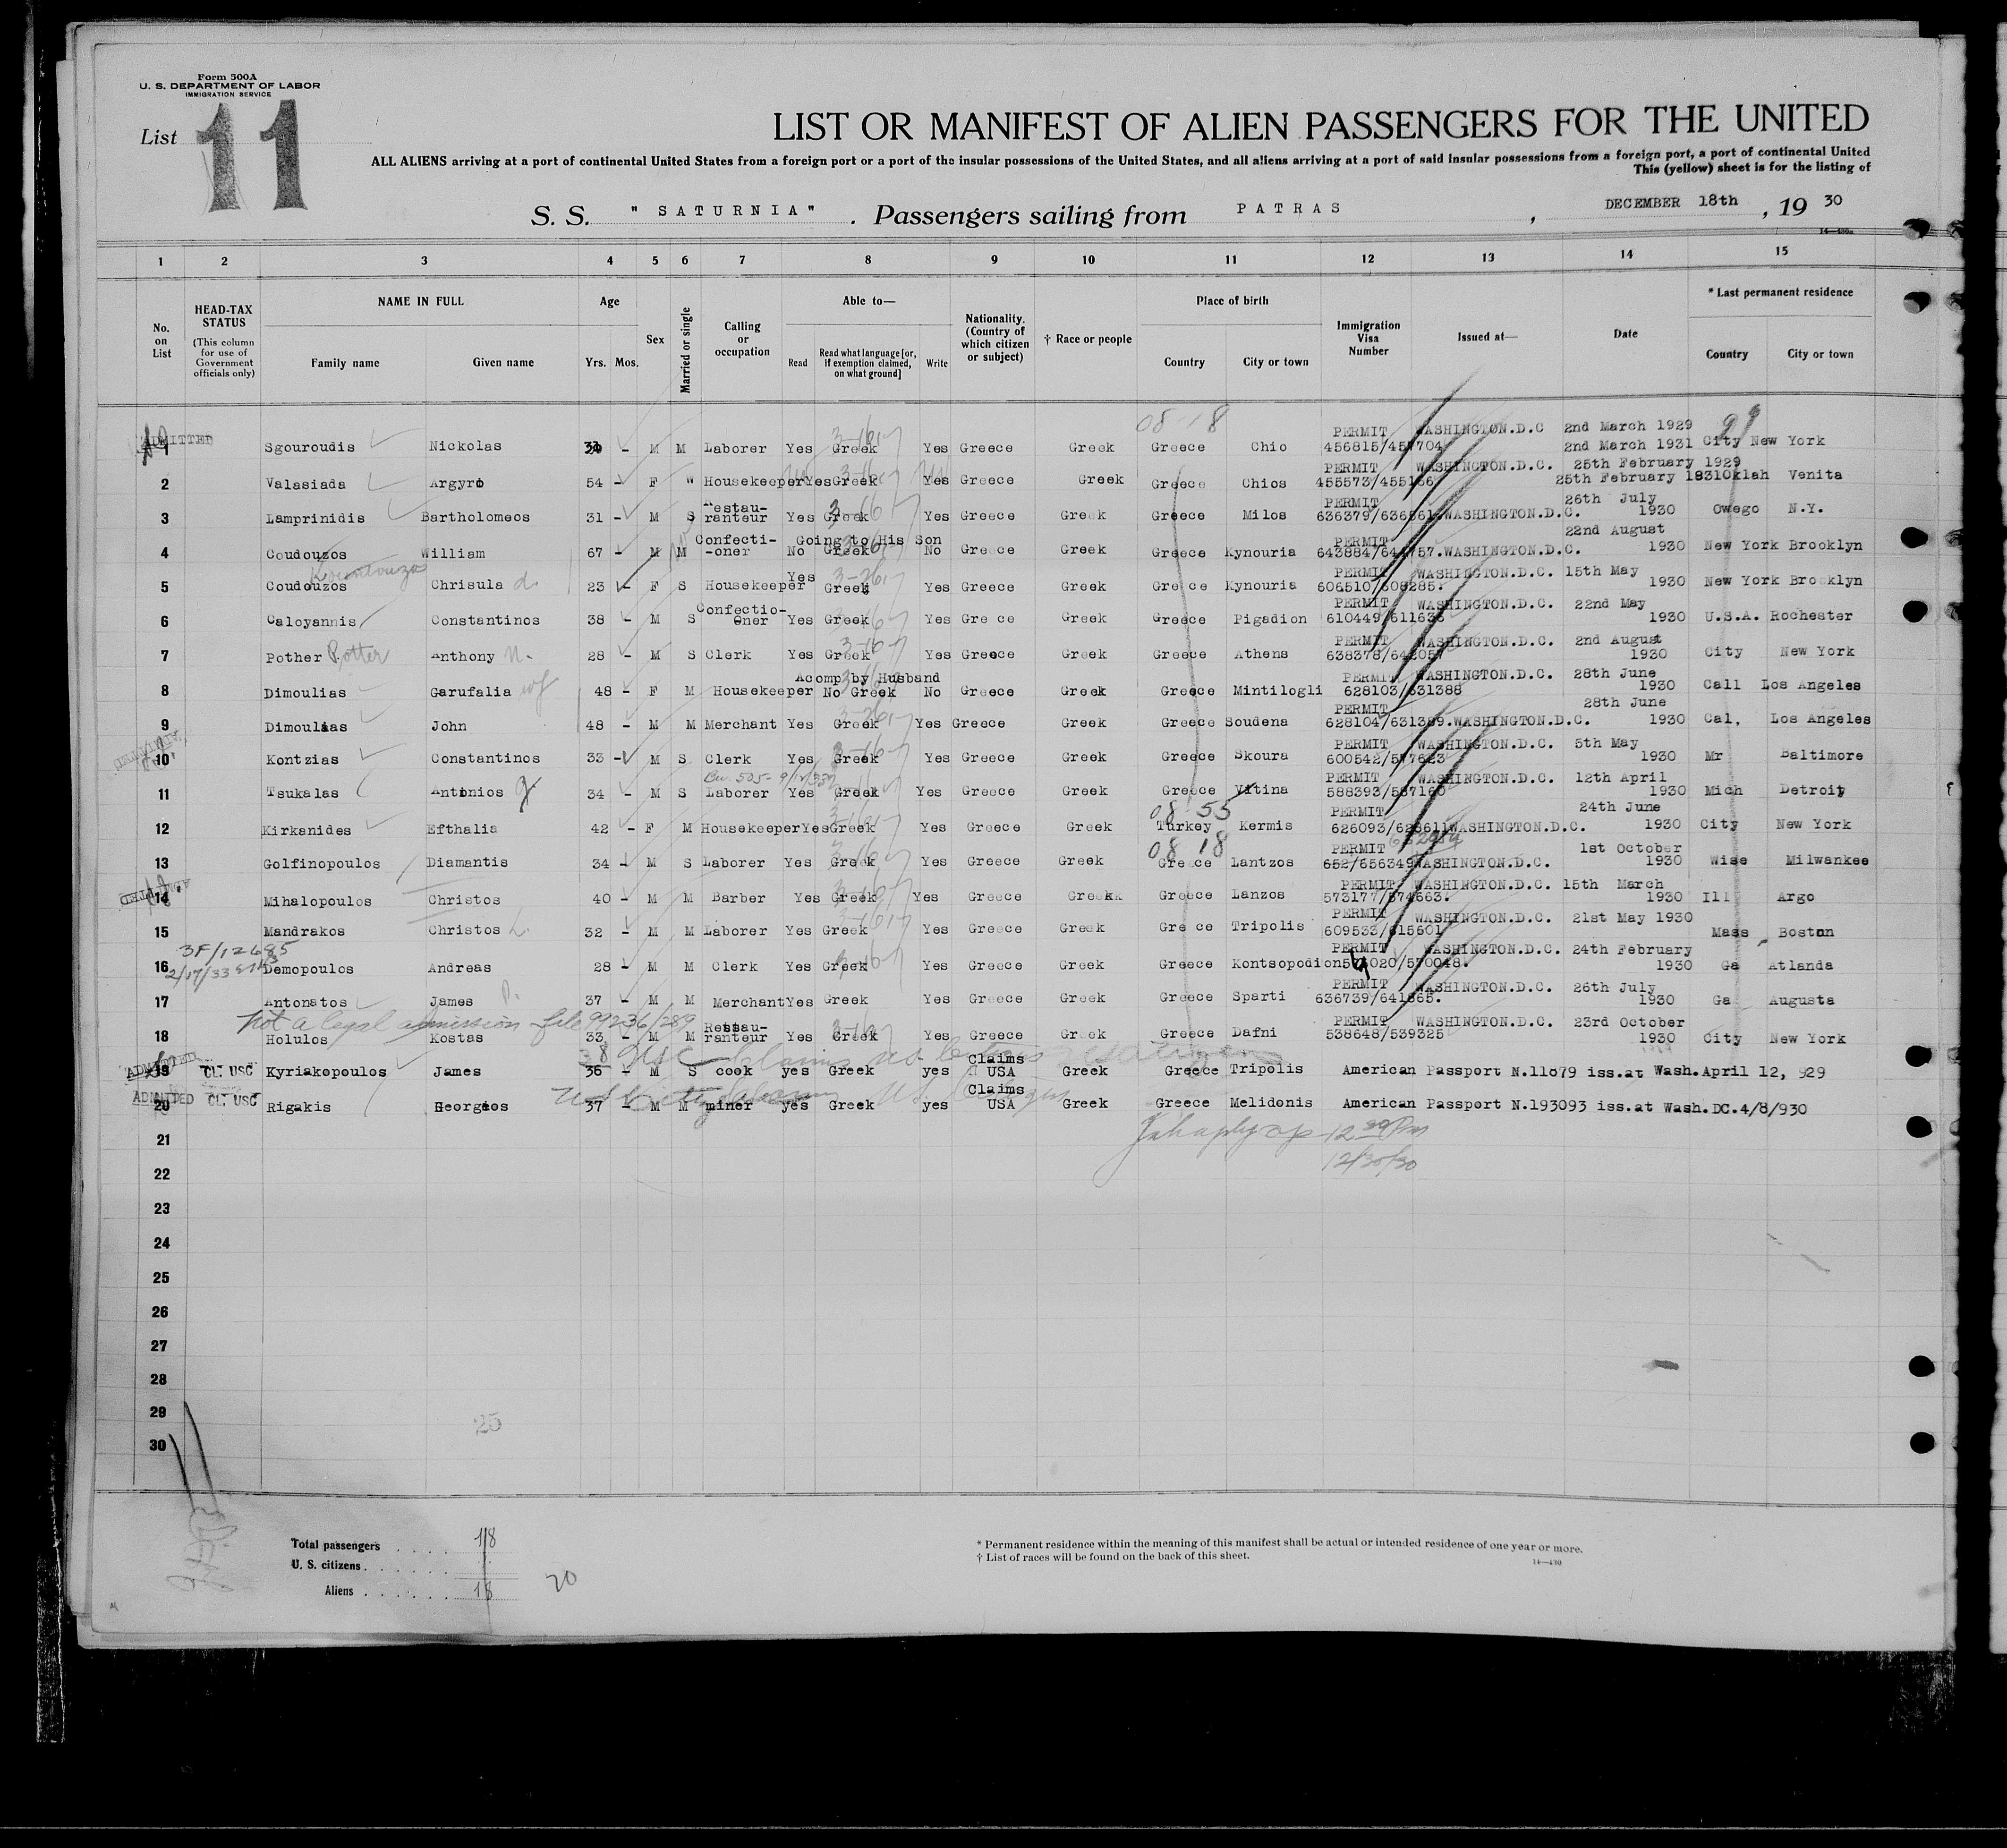 Form 500A
U. S. DEPARTMENT OF LABOR
IMMIGRATION SERVICE
List 11
LIST OR MANIFEST OF ALIEN PASSENGERS FOR THE UNITED
ALL ALIENS arriving at a port of continental United States from a foreign port or a port of the insular possessions of the United States, and all aliens arriving at a port of said insular possessions from a foreign port, a port of continental United
This (yellow) sheet is for the listing of
S. S. " SATURNIA " . Passengers sailing from PATRAS , DECEMBER 18th , 19 30
1 2 3 4 5 6 7 8 9 10 11 12 13 14 15
No. on List
HEAD-TAX STATUS (This column for use of Government officials only)
NAME IN FULL Family name Given name
Age Yrs. Mos.
Sex
Married or single
Calling or occupation
Able to— Read Read what language [or, if exemption claimed, on what ground] Write
Nationality. (Country of which citizen or subject)
† Race or people
Place of birth Country City or town
Immigration Visa Number
Issued at—
Date
* Last permanent residence Country City or town
08-18
ADMITTED 1 Sgouroudis Nickolas - M M Laborer Yes Greek Yes Greece Greek Greece Chio PERMIT 456815/457704 WASHINGTON.D.C 2nd March 1929 2nd March 1931 City New York
2 Valasiada Argyro 54 - F W Housekeeper Yes Greek Yes Greece Greek Greece Chios PERMIT WASHINGTON.D.C. 25th February 1929 25th February 1831 Oklah Venita
3 Lamprinidis Bartholomeos 31 - M S Restau-ranteur Yes Greek Yes Greece Greek Greece Milos PERMIT WASHINGTON.D.C. 26th July 1930 Owego N.Y.
4 Coudouzos William 67 - M M Confecti-oner No Going to His Son Greek No Greece Greek Greece Kynouria PERMIT WASHINGTON.D.C. 22nd August 1930 New York Brooklyn
5 Coudouzos Kountouzos Chrisula d. 23 - F S Housekeeper Yes Greek Yes Greece Greek Greece Kynouria PERMIT 606510/608285. WASHINGTON.D.C. 15th May 1930 New York Brooklyn
6 Caloyannis Constantinos 38 - M S Confectio-oner Yes Greek Yes Gre ce Greek Greece Pigadion PERMIT WASHINGTON.D.C. 22nd May 1930 U.S.A. Rochester
7 Pother Potter Anthony n. 28 - M S Clerk Yes Greek Yes Greece Greek Greece Athens PERMIT WASHINGTON.D.C. 2nd August 1930 City New York
8 Dimoulias Garufalia wf 48 - F M Housekeeper Acomp by Husband No Greek No Greece Greek Greece Mintilogli PERMIT 628103/631388 WASHINGTON.D.C. 28th June 1930 Call Los Angeles
9 Dimoulias John 48 - M M Merchant Yes Greek Yes Greece Greek Greece Soudena PERMIT 628104/631389. WASHINGTON.D.C. 28th June 1930 Cal, Los Angeles
10 Kontzias Constantinos 33 - M S Clerk Yes Greek Yes Greece Greek Greece Skoura PERMIT WASHINGTON.D.C. 5th May 1930 Mr Baltimore
11 Tsukalas Antonios 34 - M S Laborer Yes Greek Yes Greece Greek Greece Vitina PERMIT WASHINGTON.D.C. 12th April 1930 Mich Detroit
08-55
12 Kirkanides Efthalia 42 - F M Housekeeper Yes Greek Yes Greece Greek Turkey Kermis PERMIT WASHINGTON.D.C. 24th June 1930 City New York
08 18
13 Golfinopoulos Diamantis 34 - M S Laborer Yes Greek Yes Greece Greek Greece Lantzos PERMIT 652/656349 WASHINGTON.D.C. 1st October 1930 Wise Milwankee
14 Mihalopoulos Christos 40 - M M Barber Yes Greek Yes Greece Greekk Greece Lanzos PERMIT 573177/574663. WASHINGTON.D.C. 15th March 1930 Ill Argo
15 Mandrakos Christos 32 - M M Laborer Yes Greek Yes Greece Greek Gre ce Tripolis PERMIT 609533/615601 WASHINGTON.D.C. 21st May 1930 Mass Boston
3F/12685
2/17/33
16 Demopoulos Andreas 28 - M M Clerk Yes Greek Yes Greece Greek Greece Kontsopodion PERMIT WASHINGTON.D.C. 24th February 1930 Ga Atlanda
17 Antonatos James 37 - M M Merchant Yes Greek Yes Greece Greek Greece Sparti PERMIT WASHINGTON.D.C. 26th July 1930 Ga Augusta
Not a legal admission - file 99236/289
18 Holulos Kostas 33 - M M Restau-ranteur Yes Greek Yes Greece Greek Greece Dafni PERMIT 538648/539325 WASHINGTON.D.C. 23rd October 1930 City New York
ADMITTED 19 CL. USC Kyriakopoulos James 36 - M S cook yes Greek yes Claims USA Greek Greece Tripolis American Passport N.11879 iss.at Wash. April 12, 929
ADMITTED 20 CL. USC Rigakis Georgios 37 - M M miner yes Greek yes Claims USA Greek Greece Melidonis American Passport N.193093 iss.at Wash.DC.4/8/930
21
12/30/30
22
23
24
25
26
27
28
29
25
30
Total passengers . . . . 18
U. S. citizens . . . . . .
Aliens . . . . . . 18
20
* Permanent residence within the meaning of this manifest shall be actual or intended residence of one year or more.
† List of races will be found on the back of this sheet.
14—430